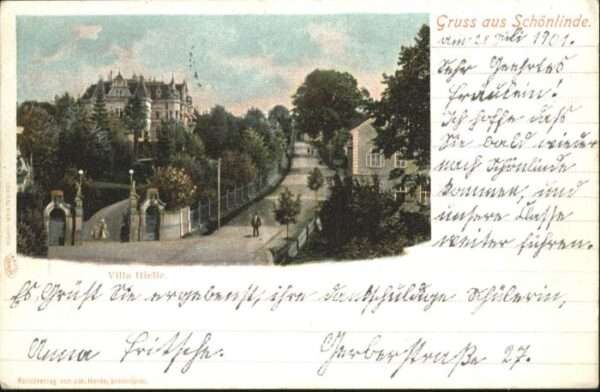 Gruss aus Schönlinde.
am 28 Juli 1901.
Sehr Geehrtes
Fräulein!
Ich hoffe daß
Sie bald wieder
nach Schönlinde
kommen, und
unsere Classe
weiter führen.
Villa Hielle.
Es Grüßt Sie ergebenst, ihre dankschuldige Schülerin,
Anna Fritsche. Gerberstraße 27.